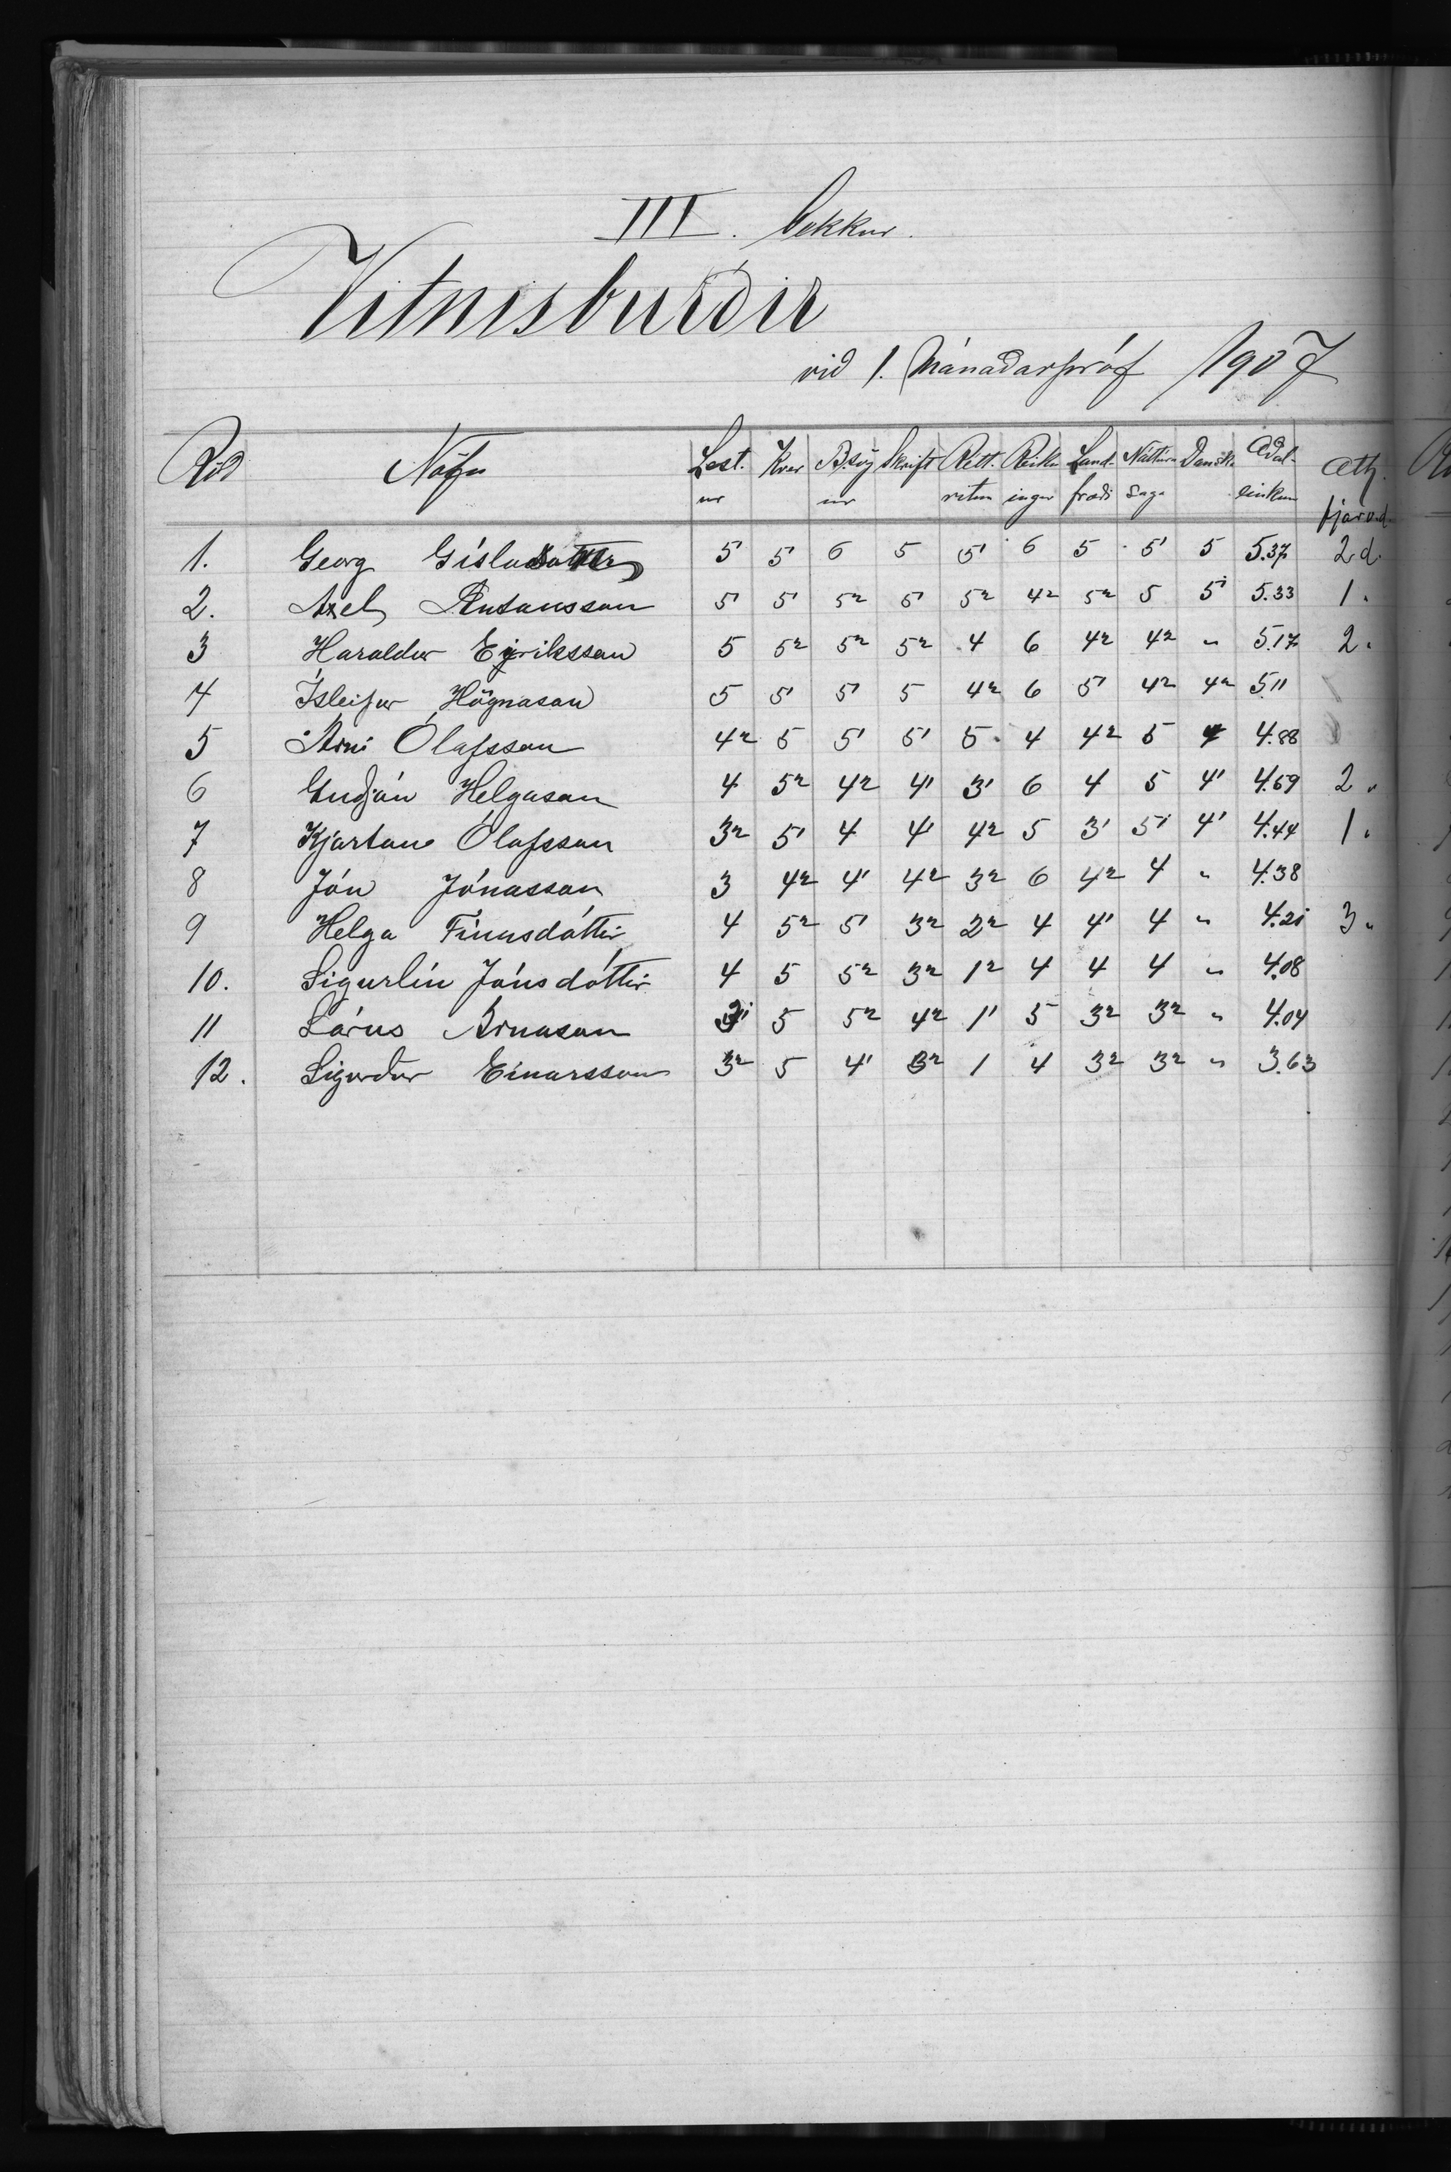 III. bekkur.
Vitnisburðir
við 1. Mánaðarpróf 1907
Röð Nöfn Lest.ur Kver B.sögur Skrift Rett.ritun Reikningur Landfræði Náttúrusaga Danska Aðaleinkun Ath. fjarvd.
1. Georg Gísla 5' 5' 6 5 5' 6 5 5' 5 5.37 2 d.
2. Axel Antonsson 5' 5' 5² 5' 5² 4² 5² 5 5' 5.33 1 "
3 Haraldur Eyriksson 5 5² 5² 5² 4 6 4² 4² " 5.17 2 "
4 Ísleifur Högnason 5 5' 5' 5 4² 6 5' 4² 4² 5.11
5 Árni Ólafsson 4² 5 5' 5' 5 4 4² 5 4 4.88
6 Guðjón Helgason 4 5² 4² 4' 3' 6 4 5 4' 4.69 2 "
7 Kjartan Ólafsson 3² 5' 4 4' 4² 5 3' 5' 4' 4.44 1 "
8 Jón Jónasson 3 4² 4' 4² 3² 6 4² 4 " 4.38
9 Helga Finnsdóttir 4 5² 5' 3² 2² 4 4' 4 " 4.21 3 "
10. Sigurlín Jónsdóttir 4 5 5² 3² 1² 4 4 4 " 4.08
11 Lárus Árnason 3' 5 5² 4² 1' 5 3² 3² " 4.04
12. Sigurður Einarsson 3² 5 4' 3² 1 4 3² 3² " 3.63